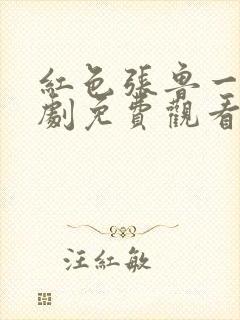 紅色張魯一
劇免費觀看
汪紅敏